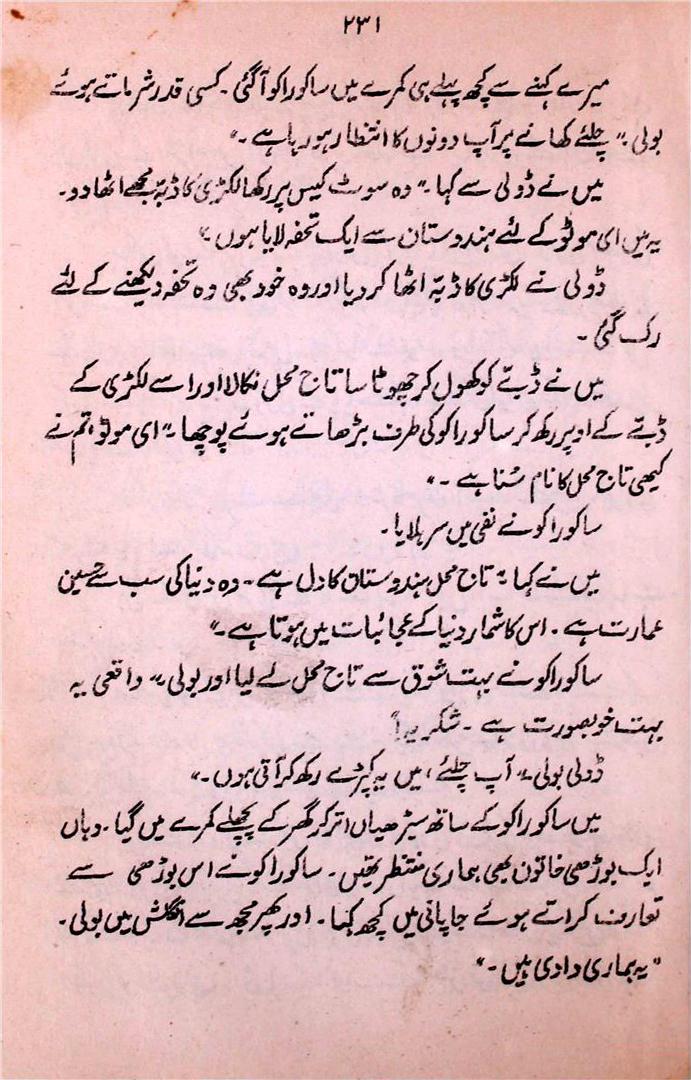 ۲۳۱
میرے کہنے سے کچھ پہلے ہی کمرے میں ساکوراکو آگئی۔ کسی قدر شرماتے ہوئے
بولی۔" چلئے کھانے پر آپ دونوں کا انتظار ہو رہا ہے۔"
میں نے ڈولی سے کہا۔" وہ سوٹ کیس پر رکھا لکڑی کا ڈبہ مجھے اٹھا دو۔
یہ میں ای موٹو کے لئے ہندوستان سے ایک تحفہ لایا ہوں۔"
ڈولی نے لکڑی کا ڈبہ اٹھا کر دیا اور وہ خود بھی وہ تحفہ دیکھنے کے لئے
رک گئی۔
میں نے ڈبے کو کھول کر چھوٹا سا تاج محل نکالا اور اسے لکڑی کے
ڈبے کے اوپر رکھ کر ساکوراکو کی طرف بڑھاتے ہوئے پوچھا۔" ای موٹو، تم نے
کبھی تاج محل کا نام سُنا ہے۔"
ساکوراکو نے نفی میں سر ہلایا۔
میں نے کہا " تاج محل ہندوستان کا دل ہے۔ وہ دنیا کی سب سے حسین
عمارت ہے۔ اس کا شمار دنیا کے عجائبات میں ہوتا ہے۔"
ساکوراکو نے بہت شوق سے تاج محل لے لیا اور بولی۔" واقعی یہ
بہت خوبصورت ہے۔ شکریہ!"
ڈولی بولی۔" آپ چلئے، میں یہ کپڑے رکھ کر آتی ہوں۔"
میں ساکوراکو کے ساتھ سیڑھیاں اتر کر گھر کے پچھلے کمرے میں گیا۔ وہاں
ایک بوڑھی خاتون بھی ہماری منتظر تھیں۔ ساکوراکو نے اس بوڑھی سے
تعارف کراتے ہوئے جاپانی میں کچھ کہا۔ اور پھر مجھ سے انگلش میں بولی۔
"یہ ہماری دادی ہیں۔"